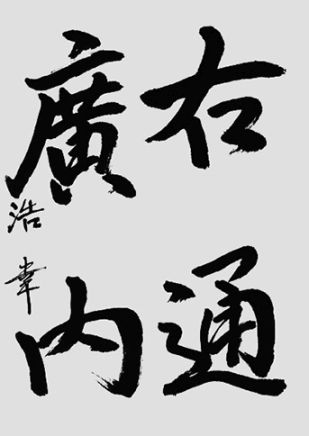 右通
廣内
浩葦